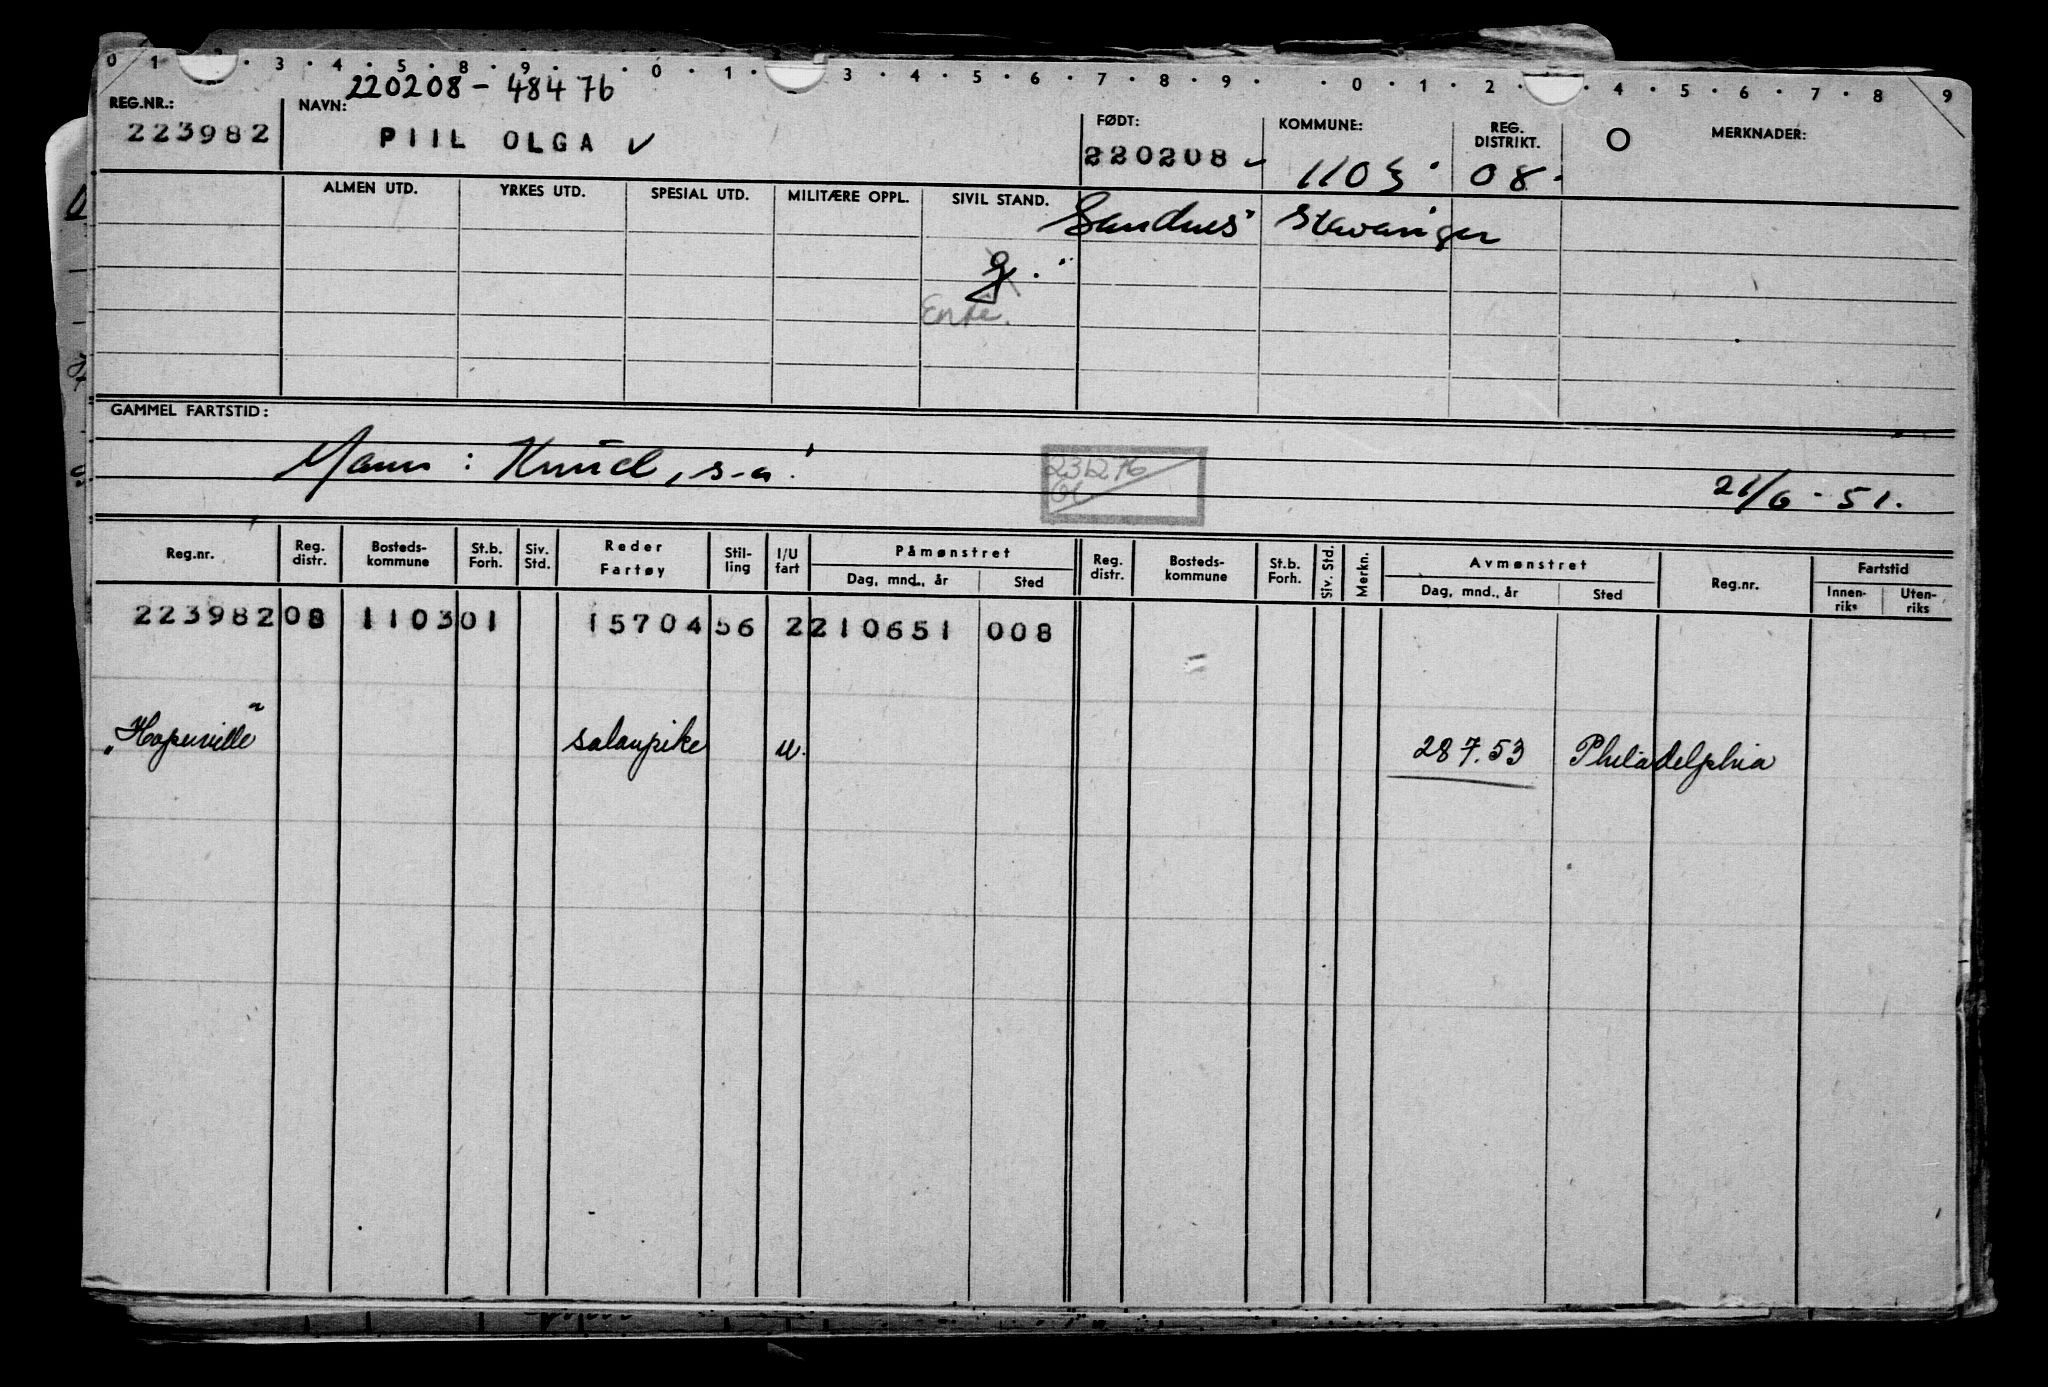 0 1 3 4 5 8 9 0 1 3 4 5 6 7 8 9 0 1 2 4 5 6 7 8 9
220208-48476
REG.NR.: NAVN: FØDT: KOMMUNE: REG. DISTRIKT. MERKNADER:
223982 PIIL OLGA ✓ 220208 1103 08
ALMEN UTD. YRKES UTD. SPESIAL UTD. MILITÆRE OPPL. SIVIL STAND.
Sandnes Stavanger
g.
Enke.
GAMMEL FARTSTID:
Mann: Knud, s-a.
231276
21/6-51.
Reg.nr. Reg. distr. Bosteds-kommune St.b. Forh. Siv. Std. Reder Fartøy Stil-ling I/U fart Påmønstret Dag, mnd., år Sted Reg. distr. Bosteds-kommune St.b. Forh. Siv. Std. Merkn. Avmønstret Dag, mnd., år Sted Reg.nr. Fartstid Innen-riks Uten-riks
223982 08 1103 01 15704 56 2 210651 008
"Hopeville" salongpike u. 28 7.53 Philadelphia